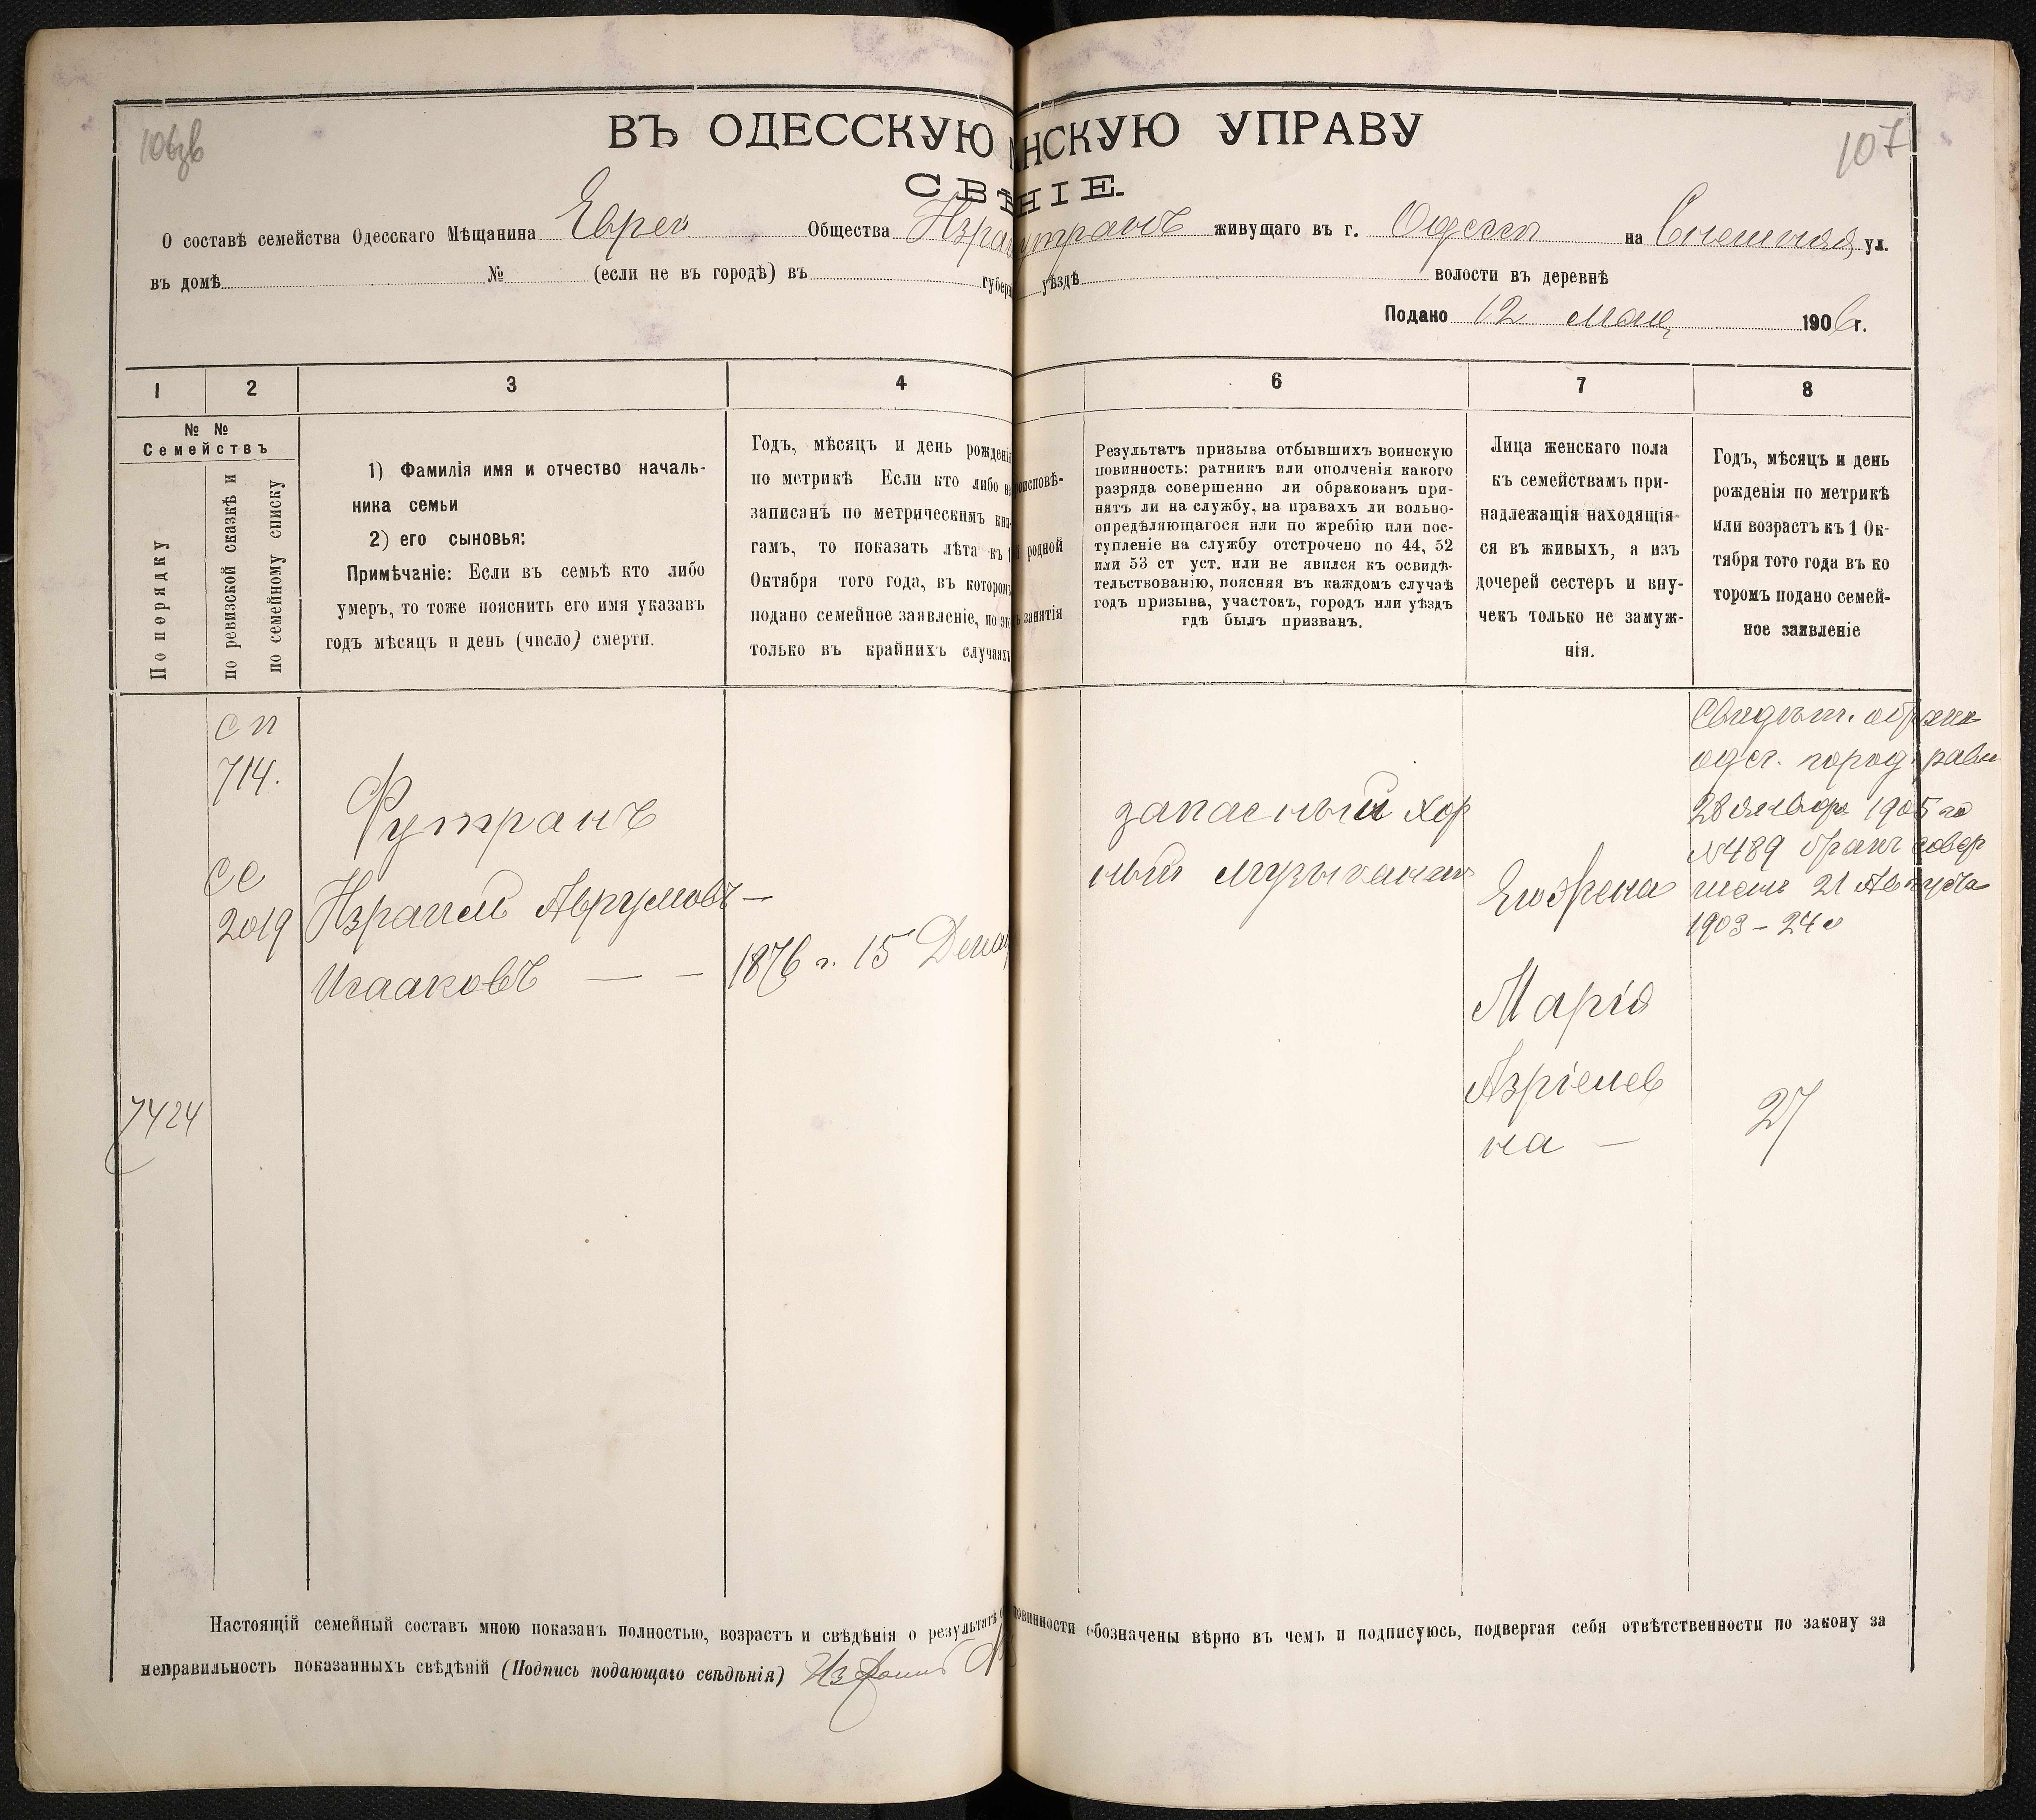 106зв
107
ВЪ ОДЕССКУЮ НСКУЮ УПРАВУ
СВѢНІЕ.
О составѣ семейства Одесскаго Мѣщанина Еврей Общества Изра утранъ живущаго въ г. Одессы на Внешняя ул.
въ домѣ № (если не въ городѣ) въ губерн уѣздѣ волости въ деревнѣ
Подано 12 мая 1906 г.
1 2 3 4 6 7 8
№ № Семействъ
По порядку
по ревизской сказкѣ и
по семейному списку
1) Фамилія имя и отчество началь-
ника семьи
2) его сыновья:
Примѣчаніе: Если въ семьѣ кто либо
умеръ, то тоже пояснить его имя указавъ
годъ мѣсяцъ и день (число) смерти.
Годъ, мѣсяцъ и день рожденія
по метрикѣ Если кто либо не
записанъ по метрическимъ кни-
гамъ, то показать лѣта къ 1
Октября того года, въ которомъ
подано семейное заявленіе, но это
только въ крайнихъ случаяхъ
оисповѣ-
родной
занятія
Результатъ призыва отбывшихъ воинскую
повинность: ратникъ или ополченія какого
разряда совершенно ли обракованъ при-
нятъ ли на службу, на правахъ ли вольно-
опредѣляющагося или по жребію или пос-
тупленіе на службу отстрочено по 44, 52
или 53 ст уст. или не явился къ освидѣ-
тельствованію, поясняя въ каждомъ случаѣ
годъ призыва, участокъ, городъ или уѣздъ
гдѣ былъ призванъ.
Лица женскаго пола
къ семействамъ при-
надлежащія находящія-
ся въ живыхъ, а изъ
дочерей сестеръ и вну-
чекъ только не замуж-
нія.
Годъ, мѣсяцъ и день
рожденія по метрикѣ
или возрастъ къ 1 Ок-
тября того года въ ко
торомъ подано семей-
ное заявленіе
7424
сп
714.
сс
2019
Футранъ
Израиль Аврумовъ —
Исааковъ — —
1876 г. 15 Декаб
запасный хор
ный музыкантъ
Его жена
Марія
Азріелев
на —
Свидѣт. о бракѣ
одес. город. равв
28 Января 1905 го
№ 489 бракъ совер
шенъ 21 Августа
1903 – 24 л
27
Настоящій семейный составъ мною показанъ полностью, возрастъ и свѣдѣнія о результатѣ о повинности обозначены вѣрно въ чемъ и подписуюсь, подвергая себя отвѣтственности по закону за
неправильность показанныхъ свѣдѣній (Подпись подающаго свѣдѣнія) Израиль